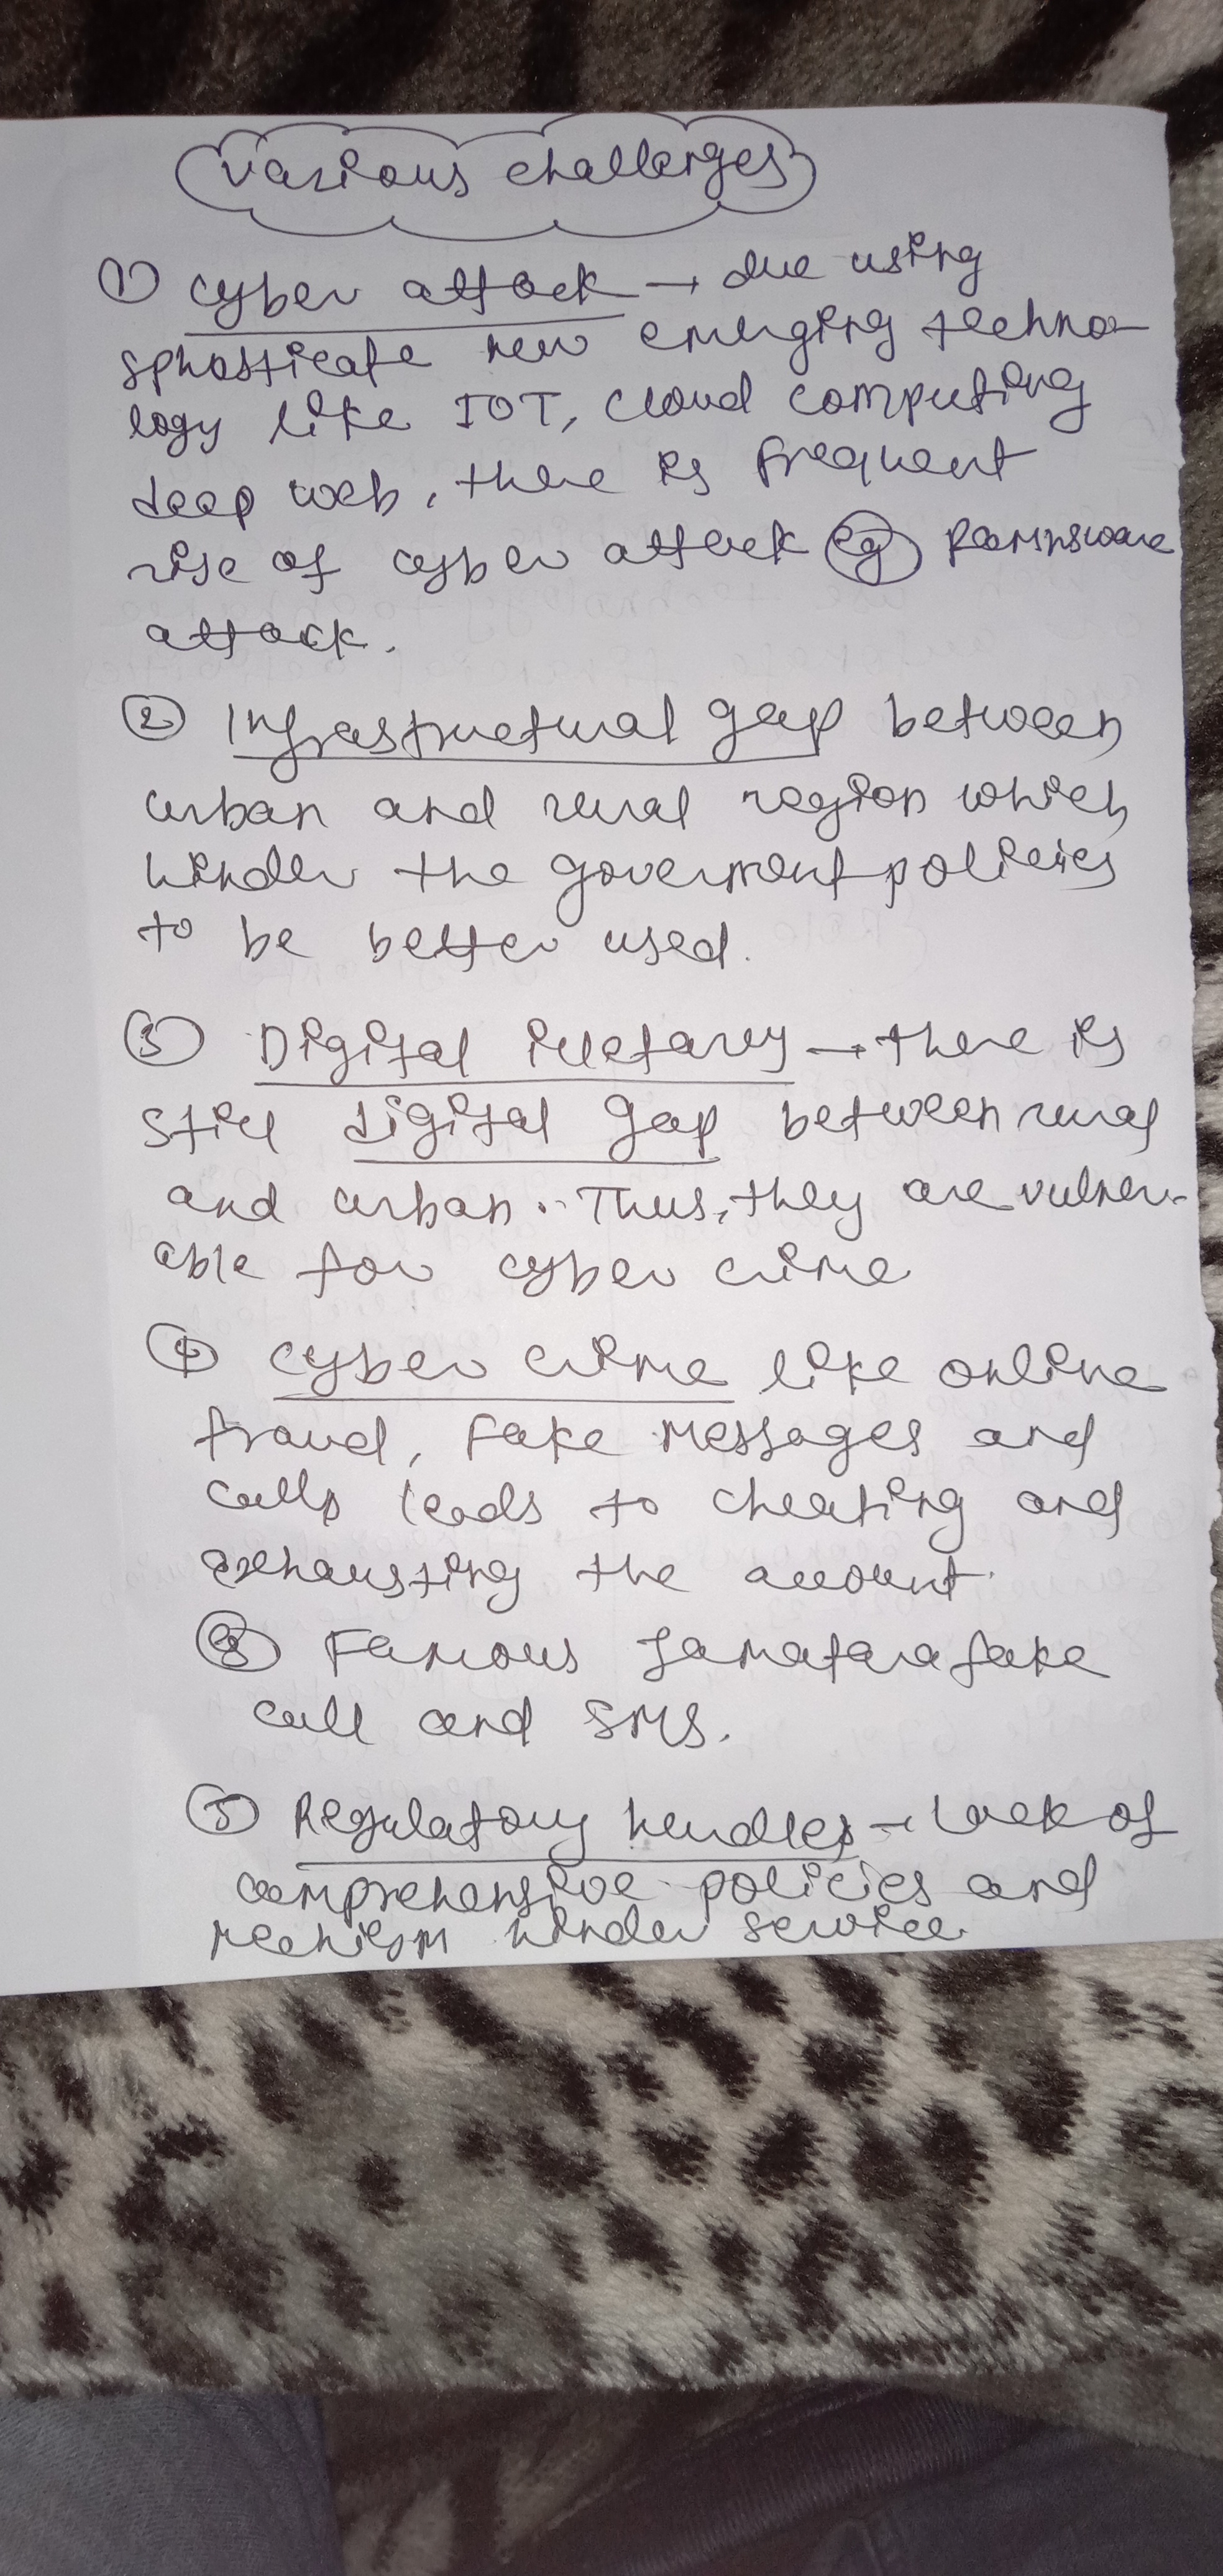 various challenges
① cyber attack → due using
sphosticate new emerging techno-
logy like IOT, cloud computing
deep web, there is frequent
rise of cyber attack eg Ramnsware
attack.
② Infrastructural gap between
urban and rural region which
hinder the government policies
to be better used.
③ Digital illetarcy → there is
still digital gap between rural
and urban. Thus, they are vulner-
able for cyber crime
④ cyber crime like online
fraud, fake messages and
calls leads to cheating and
exhausting the account.
eg Famous Jamatara fake
call and SMS.
⑤ Regulatory hurdles → lack of
comprehensive policies and
mechism hinder service